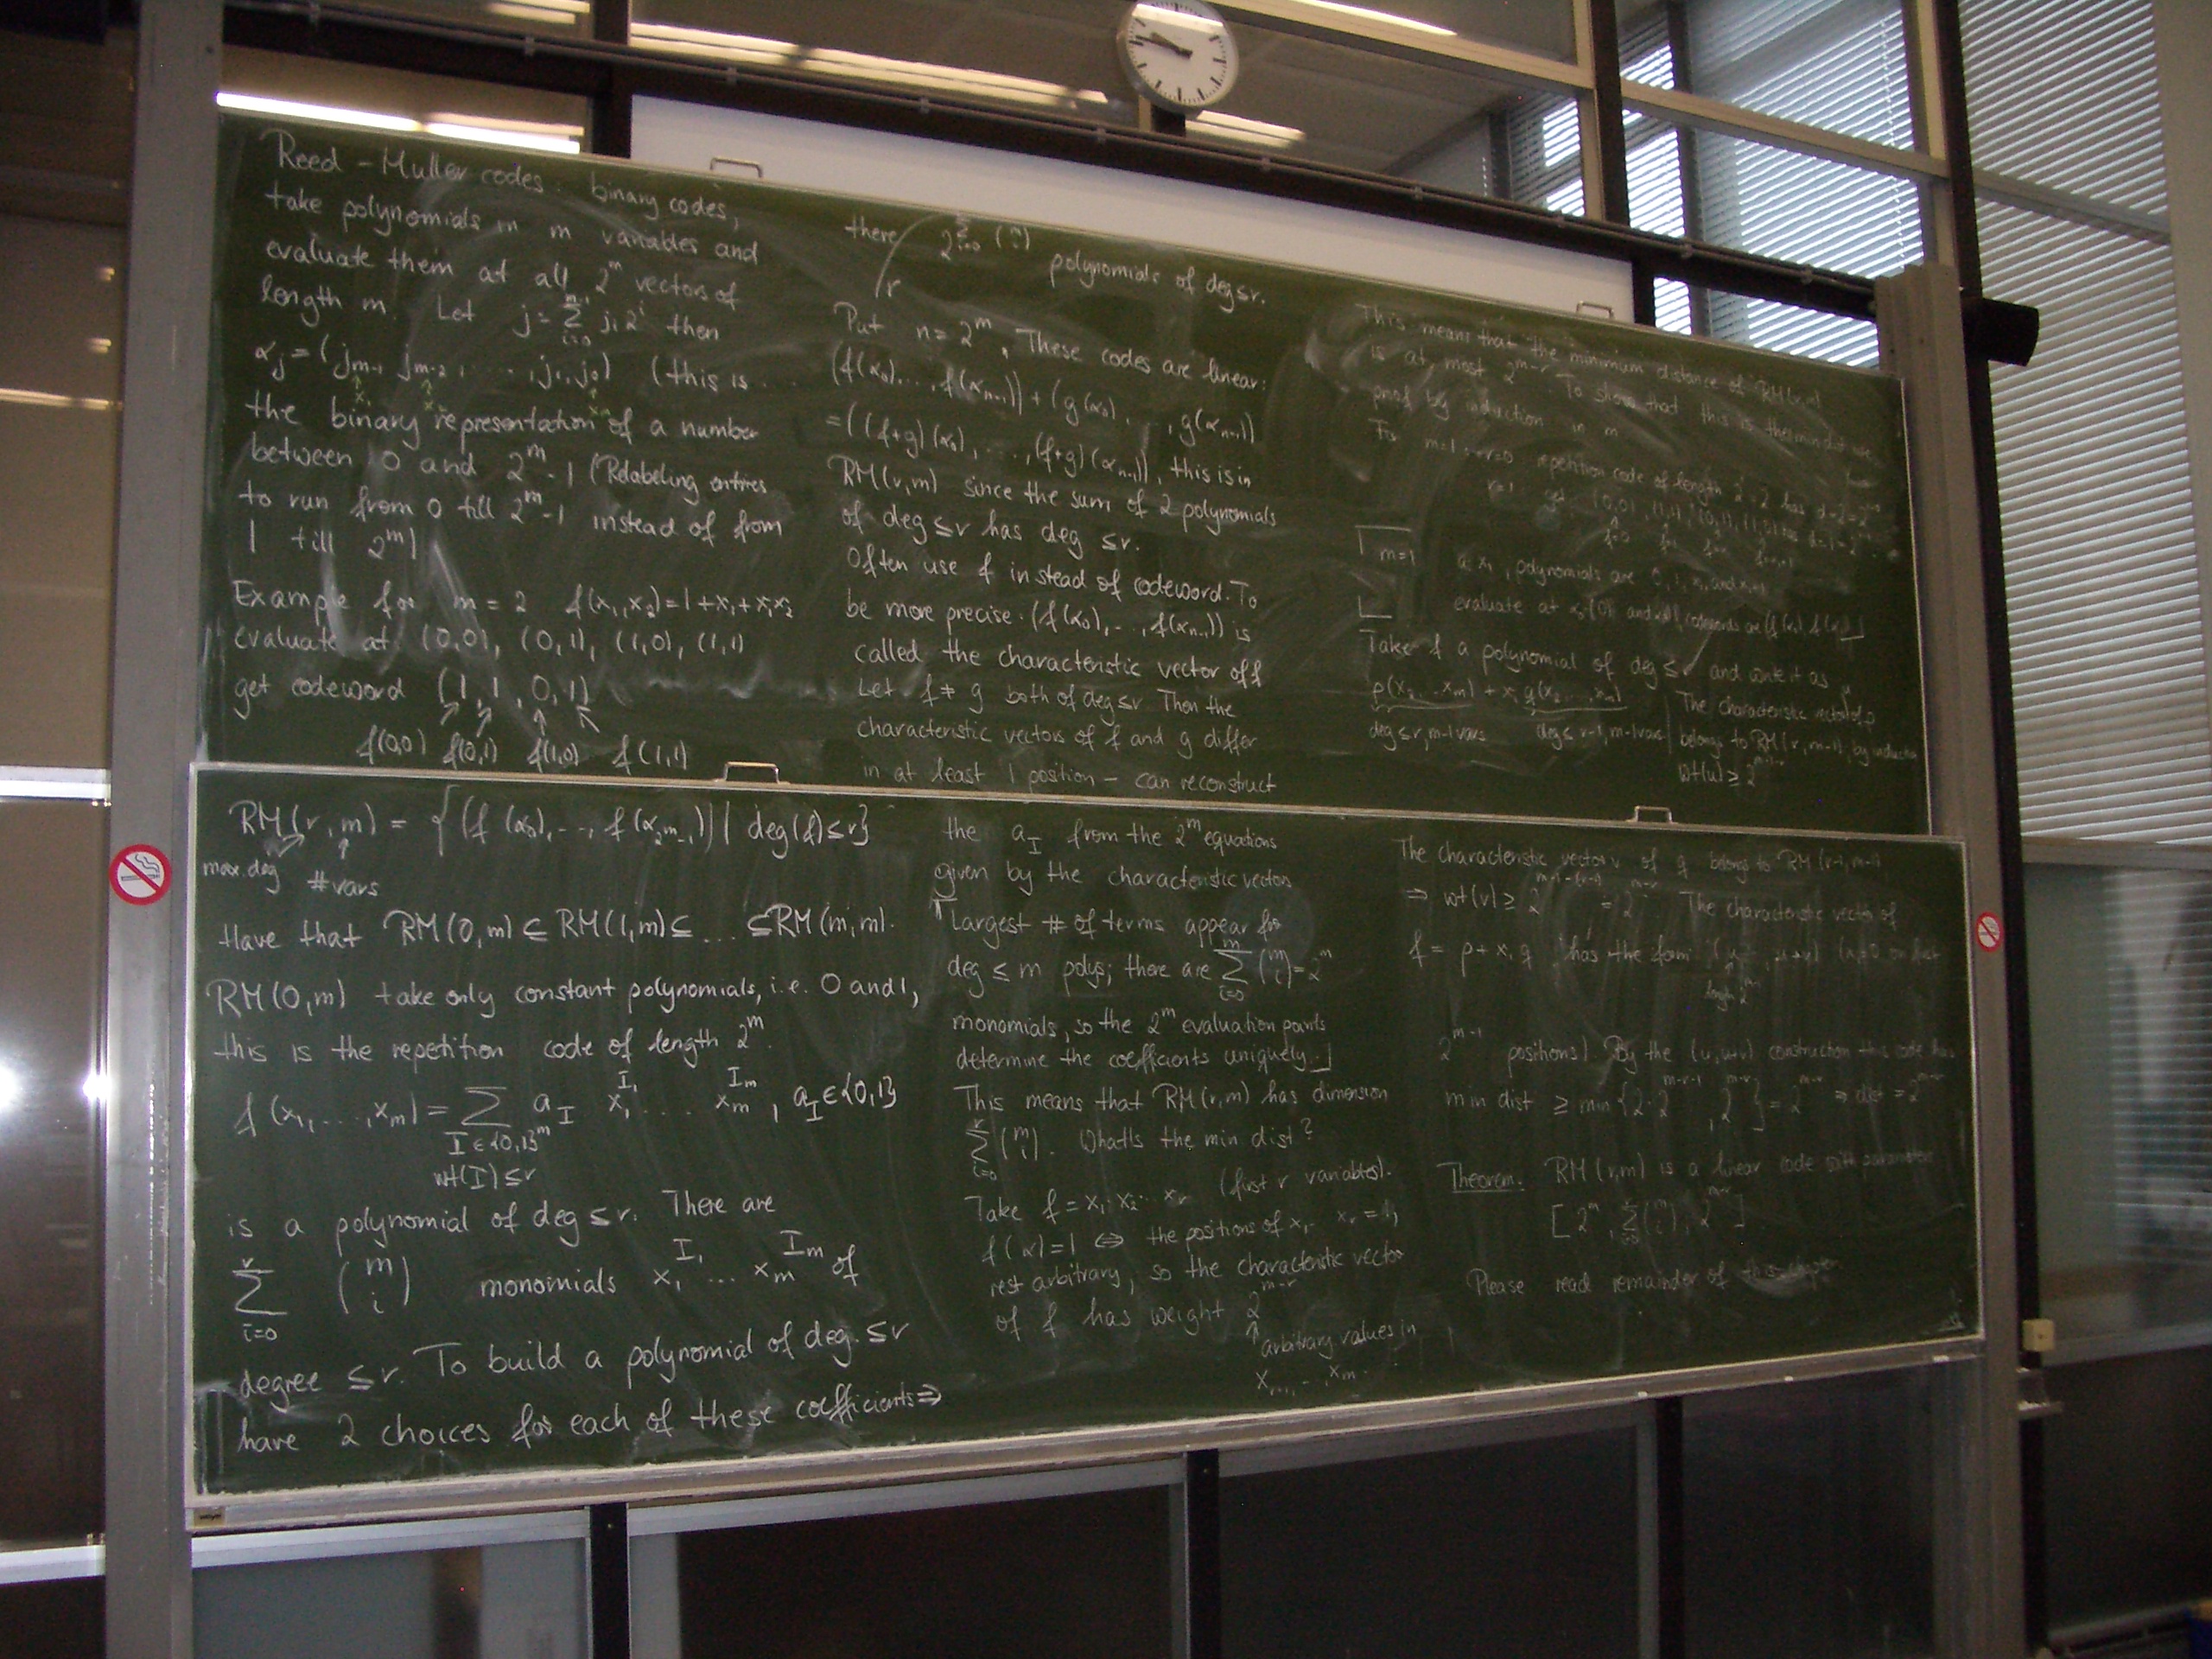 Reed - Muller codes: binary codes,
take polynomials in m variables and
evaluate them at all 2^m vectors of
length m. Let j = Σ_{i=0}^{m-1} j_i 2^i then
α_j = (j_{m-1}, j_{m-2}, ..., j_1, j_0) (this is
the binary representation of a number
between 0 and 2^m - 1 (Relabeling entries
to run from 0 till 2^m - 1 instead of from
1 till 2^m)
Example for m = 2 f(x_1, x_2) = 1 + x_1 + x_1x_2
evaluate at (0,0), (0,1), (1,0), (1,1)
get codeword (1, 1, 0, 1)
f(0,0) f(0,1) f(1,0) f(1,1)
RM(r, m) = {(f(α_0), ..., f(α_{2^m-1})) | deg(f) ≤ r}
max. deg #vars
Have that RM(0,m) ⊆ RM(1,m) ⊆ ... ⊆ RM(m,m).
RM(0,m) take only constant polynomials, i.e. 0 and 1,
this is the repetition code of length 2^m.
f(x_1, ..., x_m) = Σ a_I x_1^{I_1} ... x_m^{I_m}, a_I ∈ {0,1}
I ∈ {0,1}^m
wt(I) ≤ r
is a polynomial of deg ≤ r. There are
Σ_{i=0}^{r} (m i) monomials x_1^{I_1} ... x_m^{I_m} of
degree ≤ r. To build a polynomial of deg. ≤ r
have 2 choices for each of these coefficients ⇒
there 2^{Σ_{i=0} (m i)} polynomials of deg ≤ r.
r
Put n = 2^m. These codes are linear:
(f(α_0), ..., f(α_{n-1})) + (g(α_0), ..., g(α_{n-1}))
= ((f+g)(α_0), ..., (f+g)(α_{n-1})), this is in
RM(r,m) since the sum of 2 polynomials
of deg ≤ r has deg ≤ r.
Often use f instead of codeword. To
be more precise. (f(α_0), ..., f(α_{n-1})) is
called the characteristic vector of f
Let f ≠ g both of deg ≤ r. Then the
characteristic vectors of f and g differ
in at least 1 position - can reconstruct
the a_I from the 2^m equations
given by the characteristic vectors
Largest # of terms appear for
deg ≤ m polys; there are Σ_{i=0}^{m} (m i) = 2^m
monomials, so the 2^m evaluation points
determine the coefficients uniquely.
This means that RM(r,m) has dimension
Σ_{i=0}^{r} (m i). What is the min dist?
Take f = x_1 · x_2 ... x_r (first r variables).
f(α) = 1 ⇔ the positions of x_1 ... x_r = 1,
rest arbitrary, so the characteristic vector
of f has weight 2^{m-r}
arbitrary values in
x_{r+1}, ..., x_m.
This means that the minimum distance of RM(r,m)
is at most 2^{m-r}. To show that this is the min dist use
proof by induction in m
Fix m=1: r=0 repetition code of length 2 = 2 has d = 2 = 2
r=1 get (0,0), (1,1), (0,1), (1,0)
m=1 polynomials are 0, 1, x_1 and x_1+1
evaluate at codewords are
Take f a polynomial of deg ≤ r and write it as
p(x_2 ... x_m) + x_1 q(x_2, ..., x_m)
deg ≤ r, m-1 vars deg ≤ r-1, m-1 vars
The characteristic vector of p
belongs to RM(r, m-1), by induction
wt(u) ≥ 2^{m-1-r}
The characteristic vector v of q belongs to RM(r-1, m-1)
⇒ wt(v) ≥ 2^{m-1-(r-1)} = 2^{m-r} The characteristic vector of
f = p + x_1 q has the form (u, u+v) on first
length 2^{m-1}
2^{m-1} positions). By the (u, u+v) construction this code has
min dist ≥ min {2 · 2^{m-r-1}, 2^{m-r}} = 2^{m-r} ⇒ dist = 2^{m-r}
Theorem. RM(r,m) is a linear code with parameter
[2^m, Σ_{i=0}^{r} (m i), 2^{m-r}]
Please read remainder of this chapter